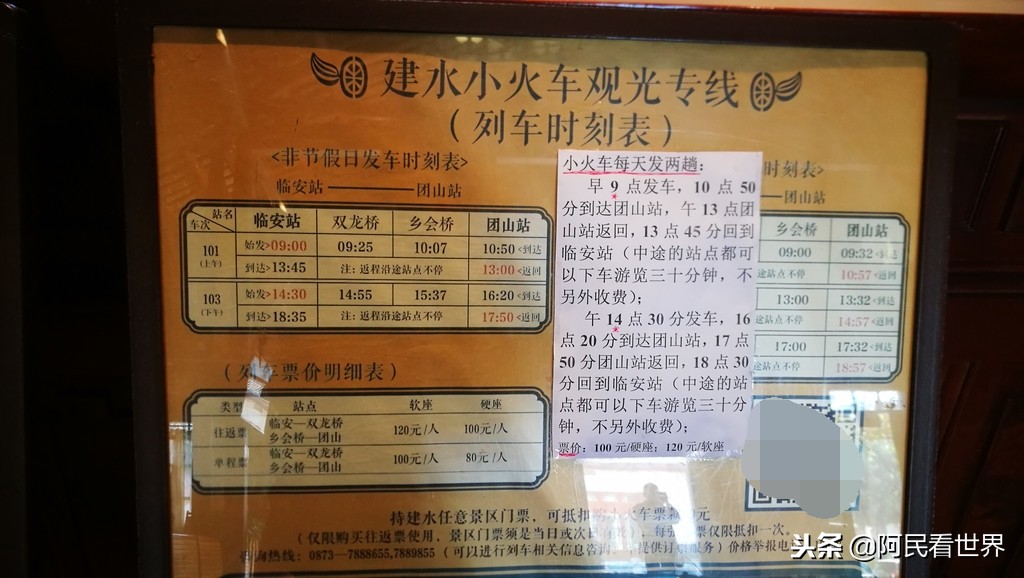 建水小火车观光专线
(列车时刻表)
<非节假日发车时刻表>
临安站————团山站
站名 临安站 双龙桥 乡会桥 团山站
车次
101 (上午) 始发>09:00 09:25 10:07 10:50<到达
到达>13:45 注:返程沿途站点不停 13:00<返回
103 (下午) 始发>14:30 14:55 15:37 16:20<到达
到达>18:35 注:返程沿途站点不停 17:50<返回
(列车票价明细表)
类型 站点 软座 硬座
往返票 临安—双龙桥 乡会桥—团山 120元/人 100元/人
单程票 临安—双龙桥 乡会桥—团山 100元/人 80元/人
小火车每天发两趟:
早9点发车,10点50
分到达团山站,午13点团
山站返回,13点45分回到
临安站(中途的站点都可
以下车游览三十分钟,不
另外收费);
午14点30分发车,16
点20分到达团山站,17点
50分团山站返回,18点30
分回到临安站(中途的站
点都可以下车游览三十分
钟,不另外收费);
票价:100元/硬座;120元/软座
时刻表>
团山站
乡会桥 团山站
09:00 09:32<到达
途站点不停 10:57<返回
13:00 13:32<到达
途站点不停 14:57<返回
17:00 17:32<到达
途站点不停 18:57<返回
持建水任意景区门票,可抵扣 小火车票 元
(仅限购买往返票使用,景区门票须是当日或次日 ,每张 票仅限抵扣一次,
咨询热线:0873—7888655,7889855 (可以进行列车相关信息咨询、 提供订票服务) 价格举报电
头条 @阿民看世界